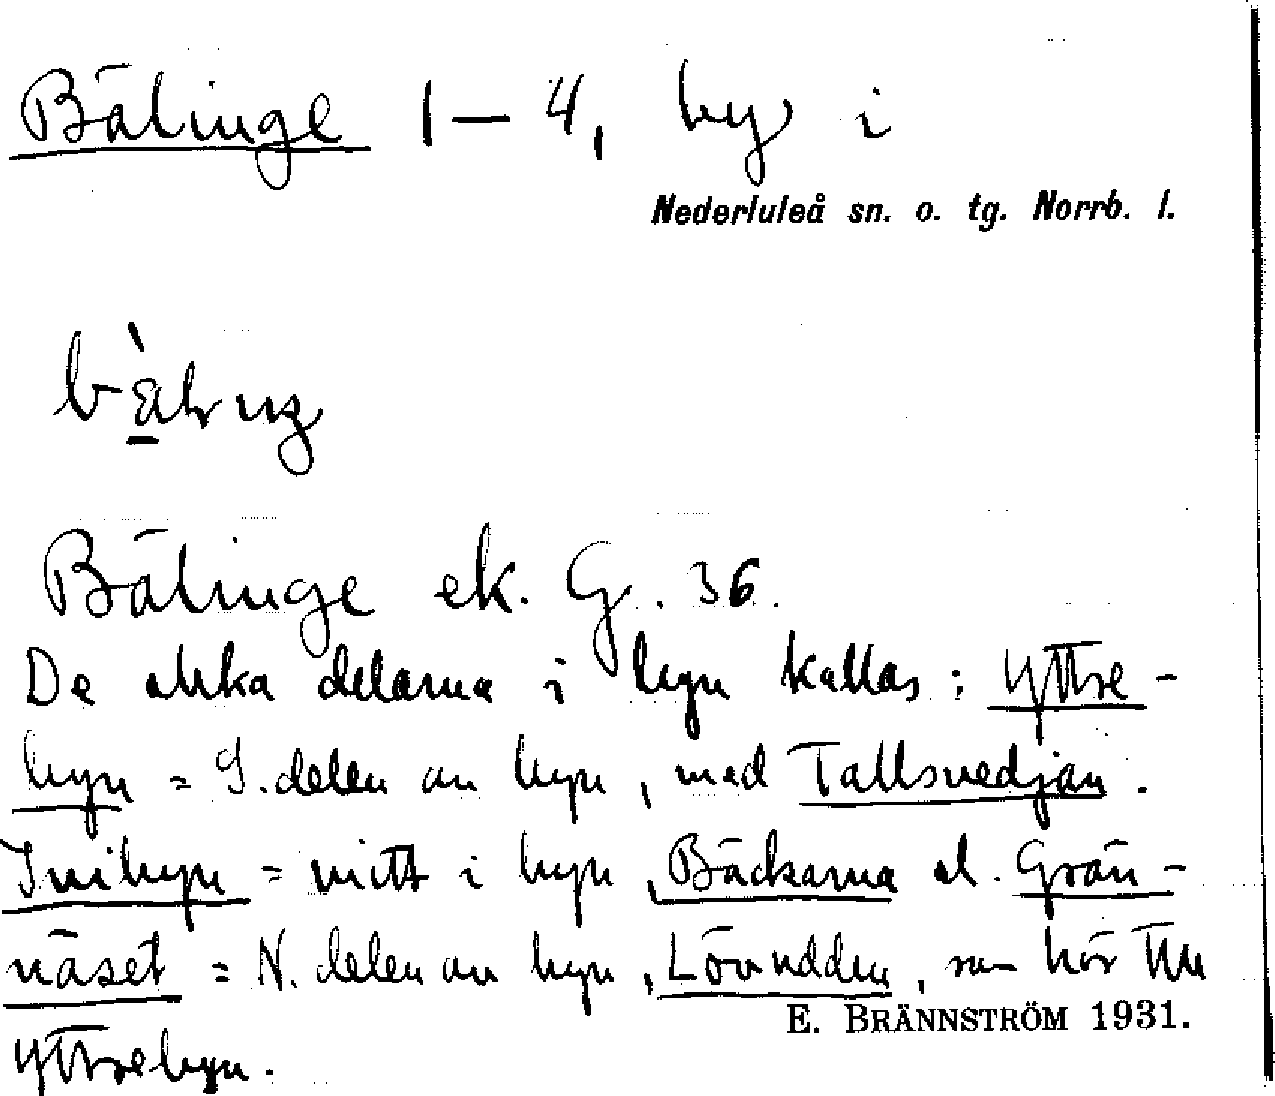 Bälinge 1–4, by i
Nederluleå sn. o. tg. Norrb. l.
Bälinge ek. G. 36.
De olika delarna i byn kallas: Yttre-
byn = S. delen av byn, med Tallsvedjan.
Inibyn = mitt i byn, Bäckarna el. Grän-
näset = N. delen av byn, Lövudden, som hör till
E. BRÄNNSTRÖM 1931.
Yttrebyn.